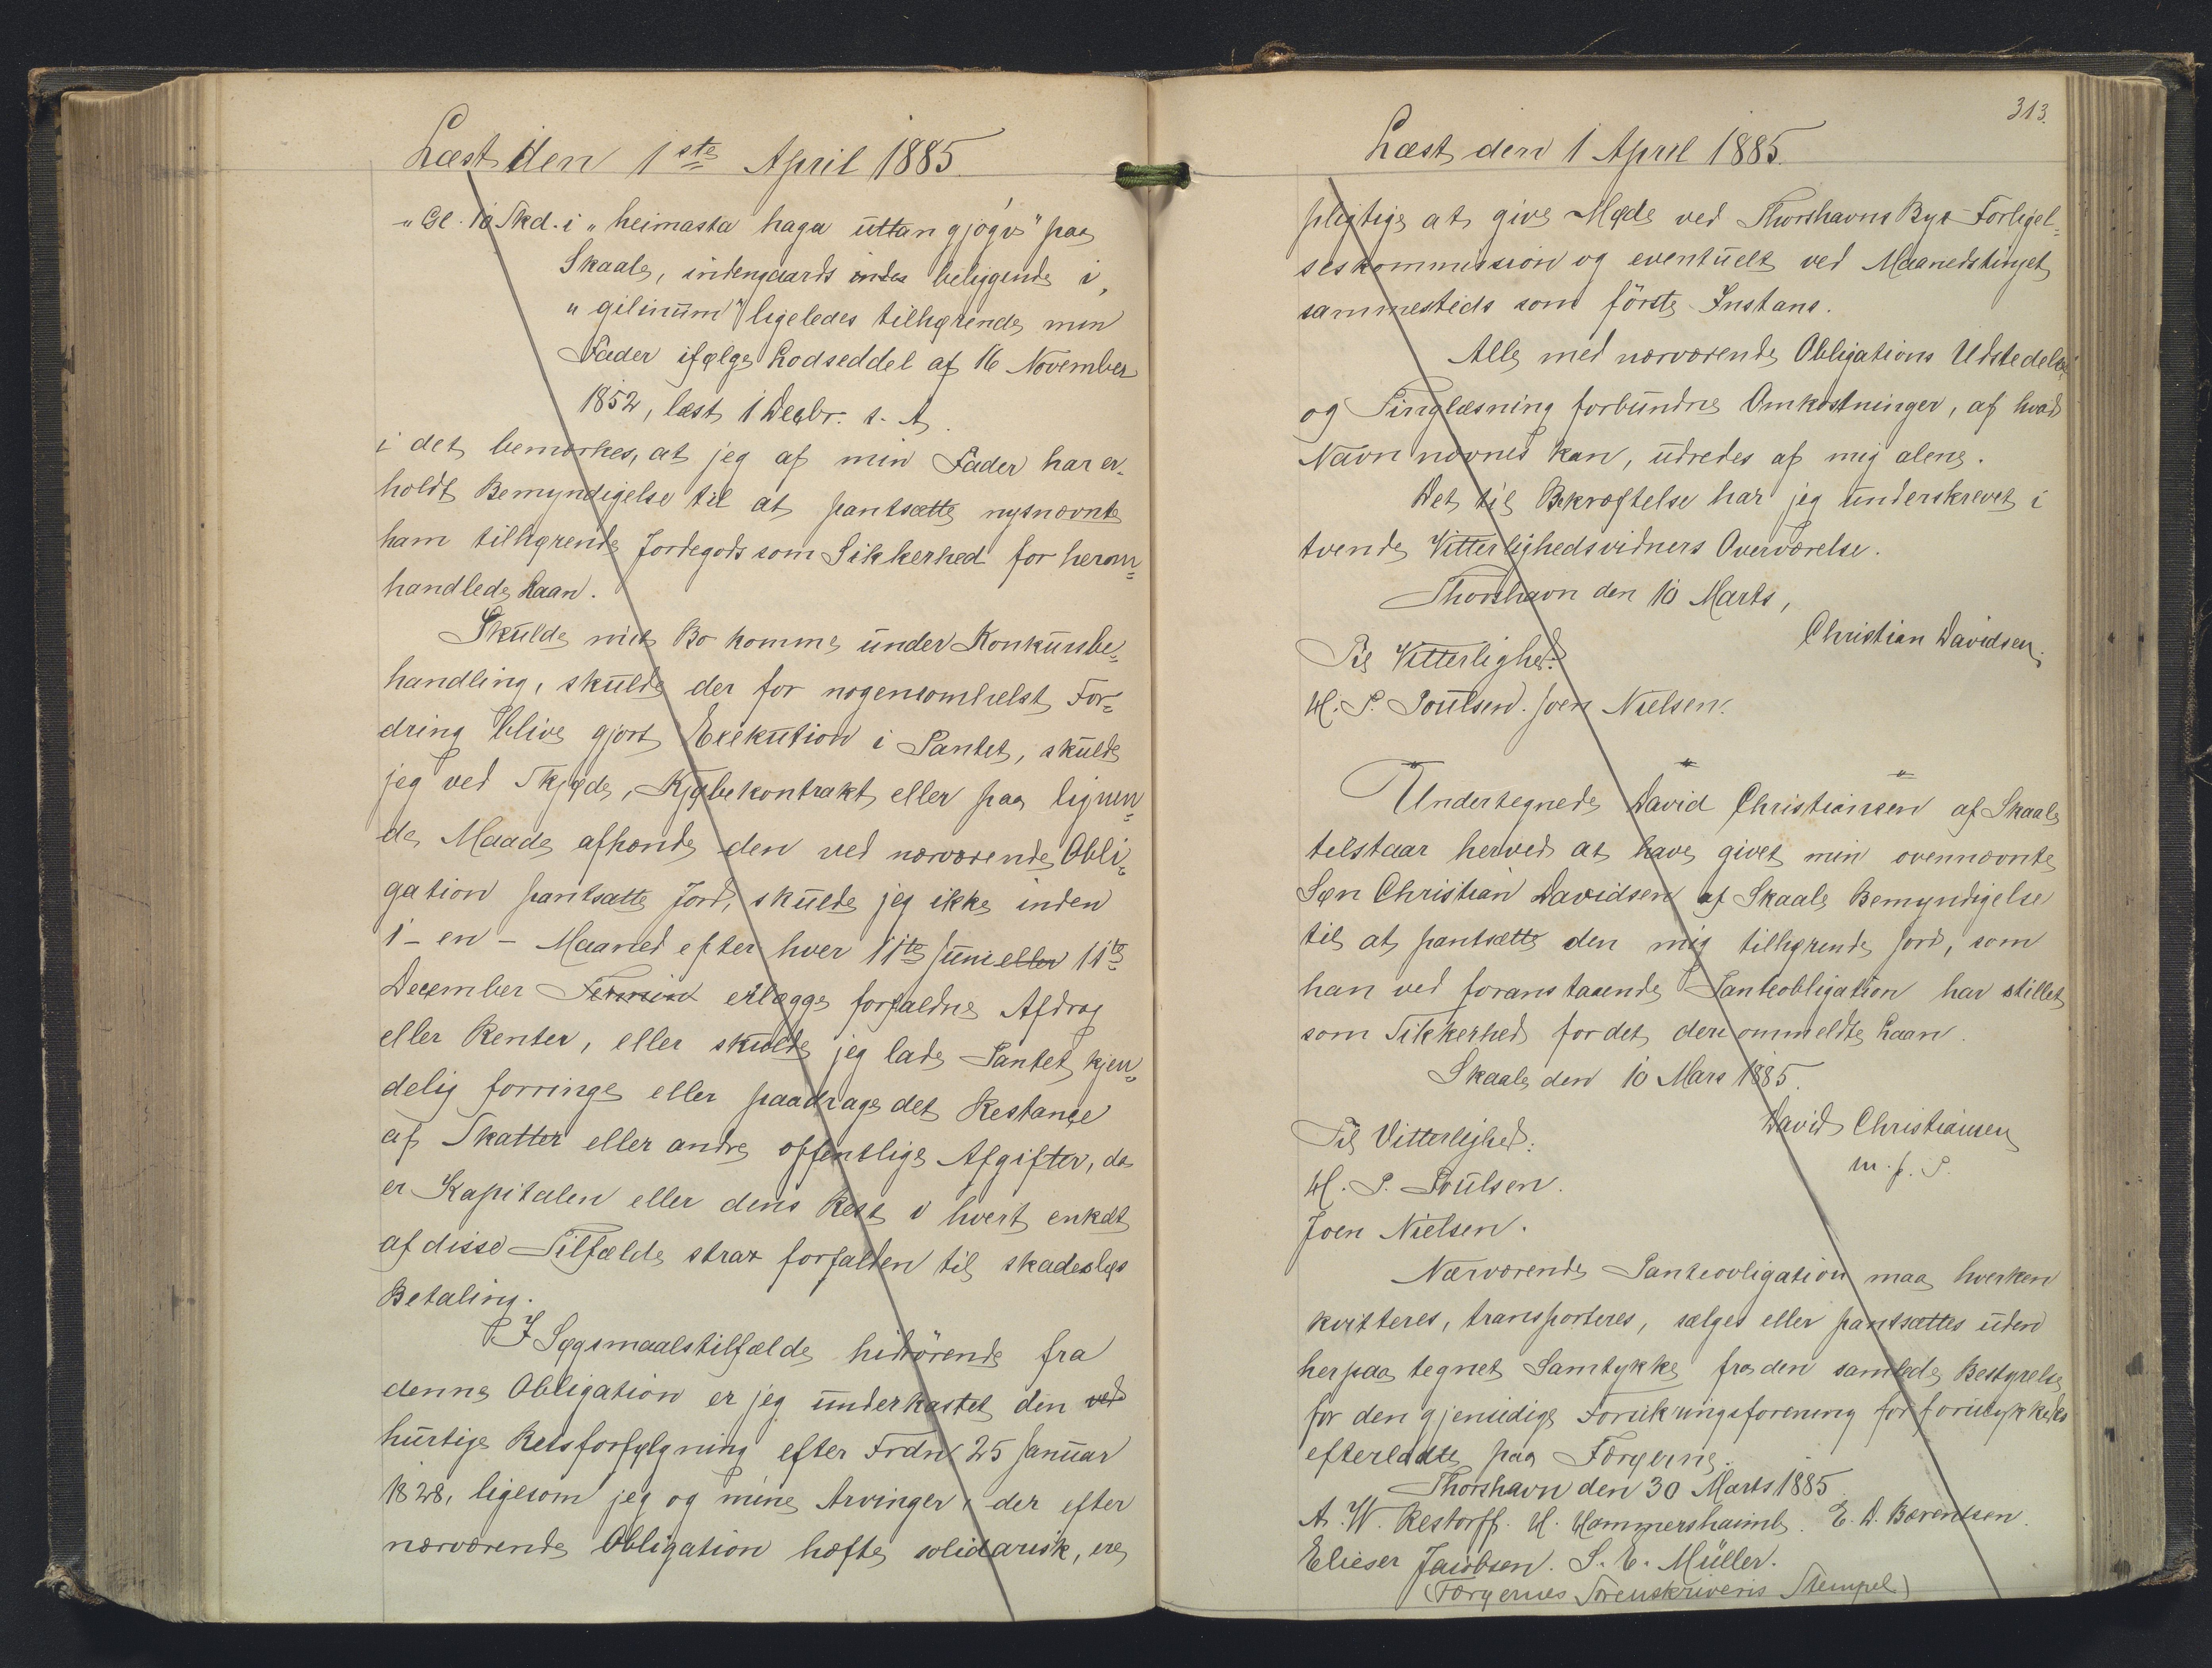 Læst den 1ste April 1885.
"Gl. 10 Skd. i "heimasta haga uttan gjógv" paa
Skaale, indengaards indes beliggende i
"gilinum" ligeledes tilhørende min
Fader ifølge Lodseddel af 16 November
1852, læst 1 Decbr. s. A.
i det bemærkes, at jeg af min Fader har er-
holdt Bemyndigelse til at pantsætte nysnævnte
ham tilhørende Jordegods som Sikkerhed for herom-
handlede Laan.
Skulde mit Bo komme under Konkursbe-
handling, skulde der for nogensomhelst For-
dring blive gjort Exekution i Pantet, skulde
jeg ved Skjøde, Kjøbekontrakt eller paa lignen-
de Maade afhænde den ved nærværende Obli-
gation pantsatte Jord, skulde jeg ikke inden
1 - en - Maaned efter hver 11te Juni eller 11te
December Termin erlægge forfaldne Afdrag
eller Renter, eller skulde jeg lade Pantet kjen-
delig forringe eller paadrage det Restance
af Skatter eller andre offentlige Afgifter, da
er Kapitalen eller dens Rest i hvert enkelt
af disse Tilfælde strax forfalden til skadesløs
Betaling.
I Søgsmaalstilfælde hidrörende fra
denne Obligation er jeg underkastet den ved
hurtige Retsforfølgning efter Frdn 25 Januar
1828, ligesom jeg og mine Arvinger, der efter
nærværende Obligation hæfte solidarisk, ere
313.
Læst den 1 April 1885.
pligtige at give Møde ved Thorshavns Byes Forligel-
seskommission og eventuelt ved Maanedstinget
sammesteds som förste Instans.
Alle med nærværende Obligations Udstedelse
og Tinglæsning forbundne Omkostninger, af hvad
Navn nævnes kan, udredes af mig alene.
Det til Bekræftelse har jeg underskrevet i
tvende Vitterlighedsvidners Overværelse.
Thorshavn den 10 Marts,
Christian Davidsen.
Til Vitterlighed:
H. P. Poulsen. Joen Nielsen.
Undertegnede David Christiansen af Skaale
tilstaar herved at have givet min ovennævnte
Søn Christian Davidsen af Skaale Bemyndigelse
til at pantsætte den mig tilhørende Jord, som
han ved foranstaaende Panteobligation har stillet
som Sikkerhed for det deri ommeldte Laan.
Skaale den 10 Mars 1885.
David Christiansen
m. f. P.
Til Vitterlighed:
H. P. Poulsen.
Joen Nielsen.
Nærværende Panteobligation maa hverken
kvitteres, transporteres, sælges eller pantsættes uden
herpaa tegnet Samtykke fra den samlede Bestyrelse
for den gjensidige Forsikringsforening for forulykkedes
efterladte paa Færøerne.
Thorshavn den 30 Marts 1885.
A. W. Restorff. H. Hammershaimb. E. D. Bærentsen.
Elieser Jacobsen. S. E. Müller.
(Færøernes Sorenskriveris Stempel)